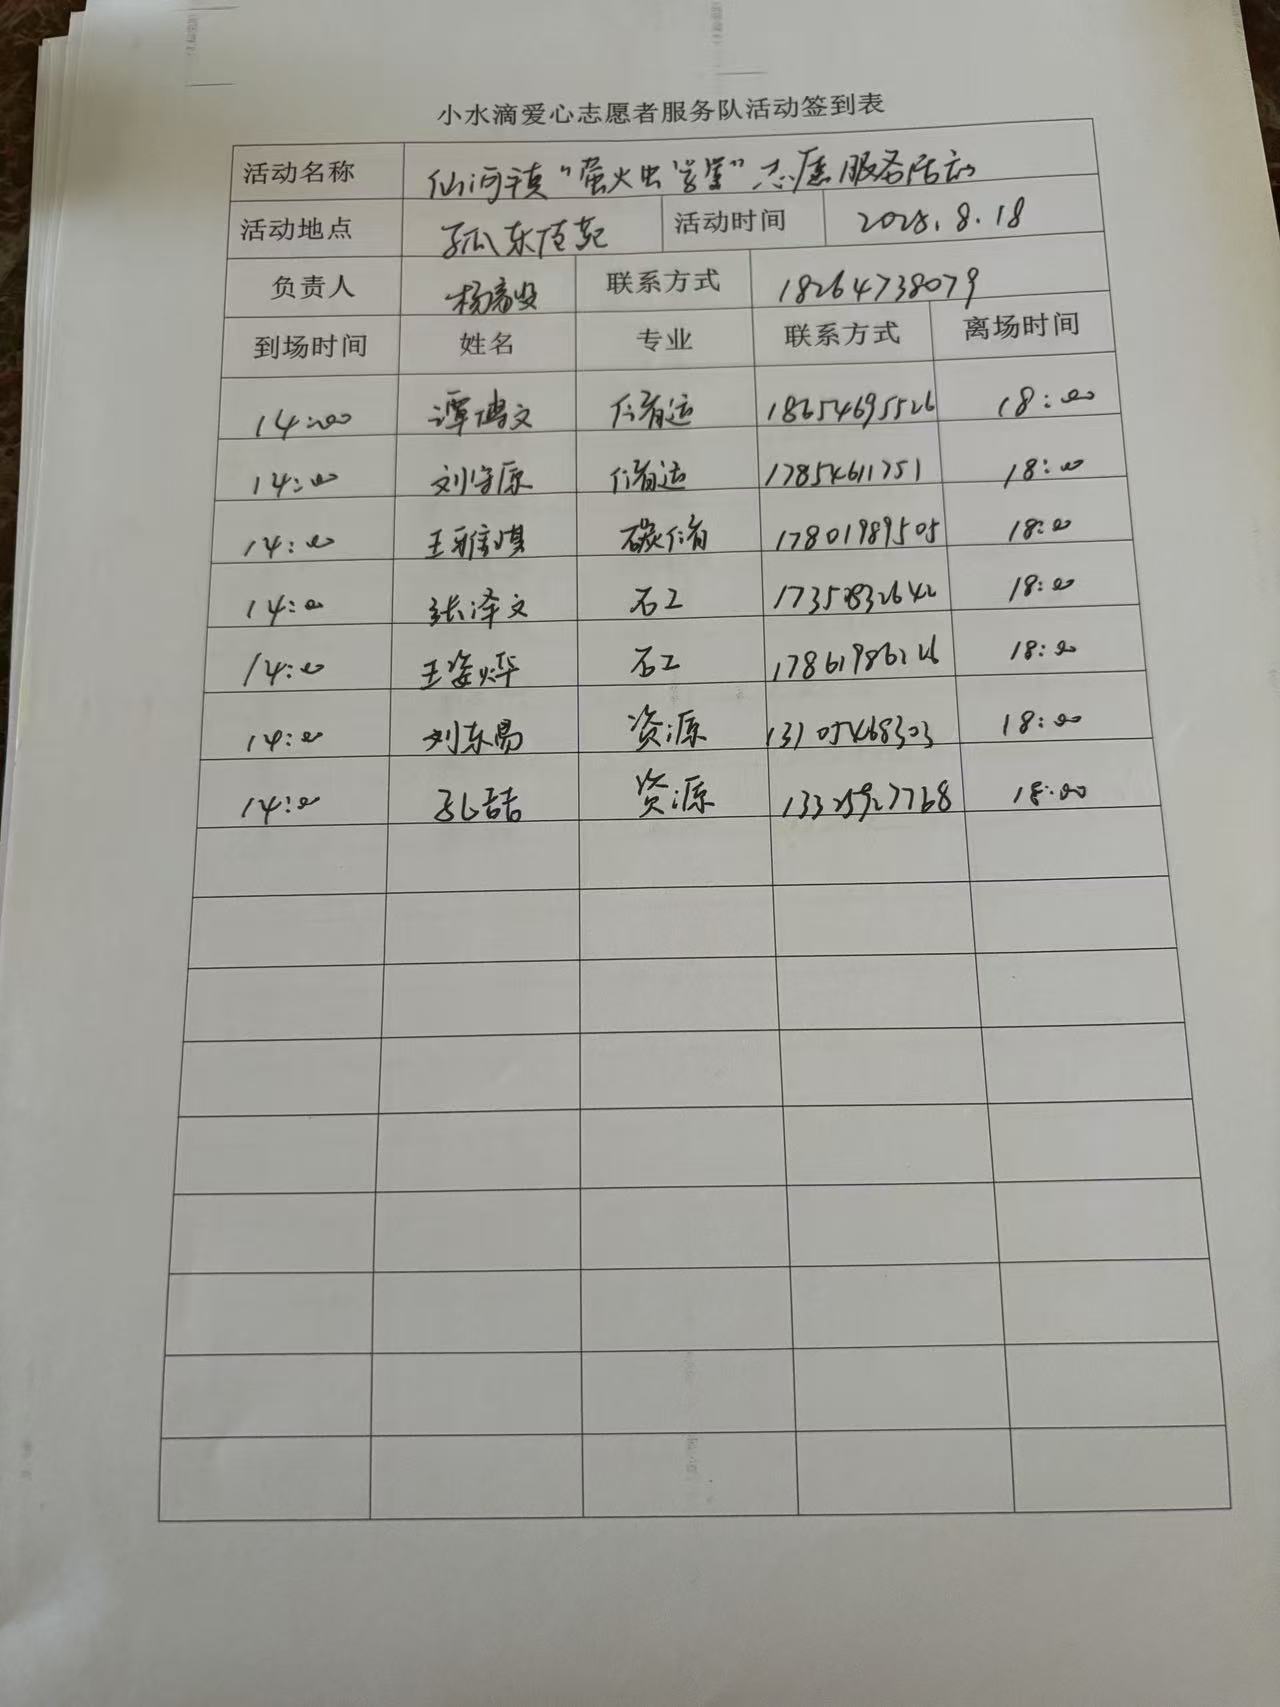 小水滴爱心志愿者服务队活动签到表
活动名称 仙河镇“萤火虫学堂”志愿服务活动
活动地点 孤东佳苑 活动时间 2025.8.18
负责人 杨 联系方式 18264738079
到场时间 姓名 专业 联系方式 离场时间
14:00 谭鸿文 储运 18654695526 18:00
14:00 刘守原 储运 17854611751 18:00
14:00 王雅淇 碳储 17801989505 18:00
14:00 张泽文 石工 18:00
14:00 王姿烨 石工 18:00
14:00 刘东昌 资源 13105468303 18:00
14:00 孔喆 资源 13325927768 18:00